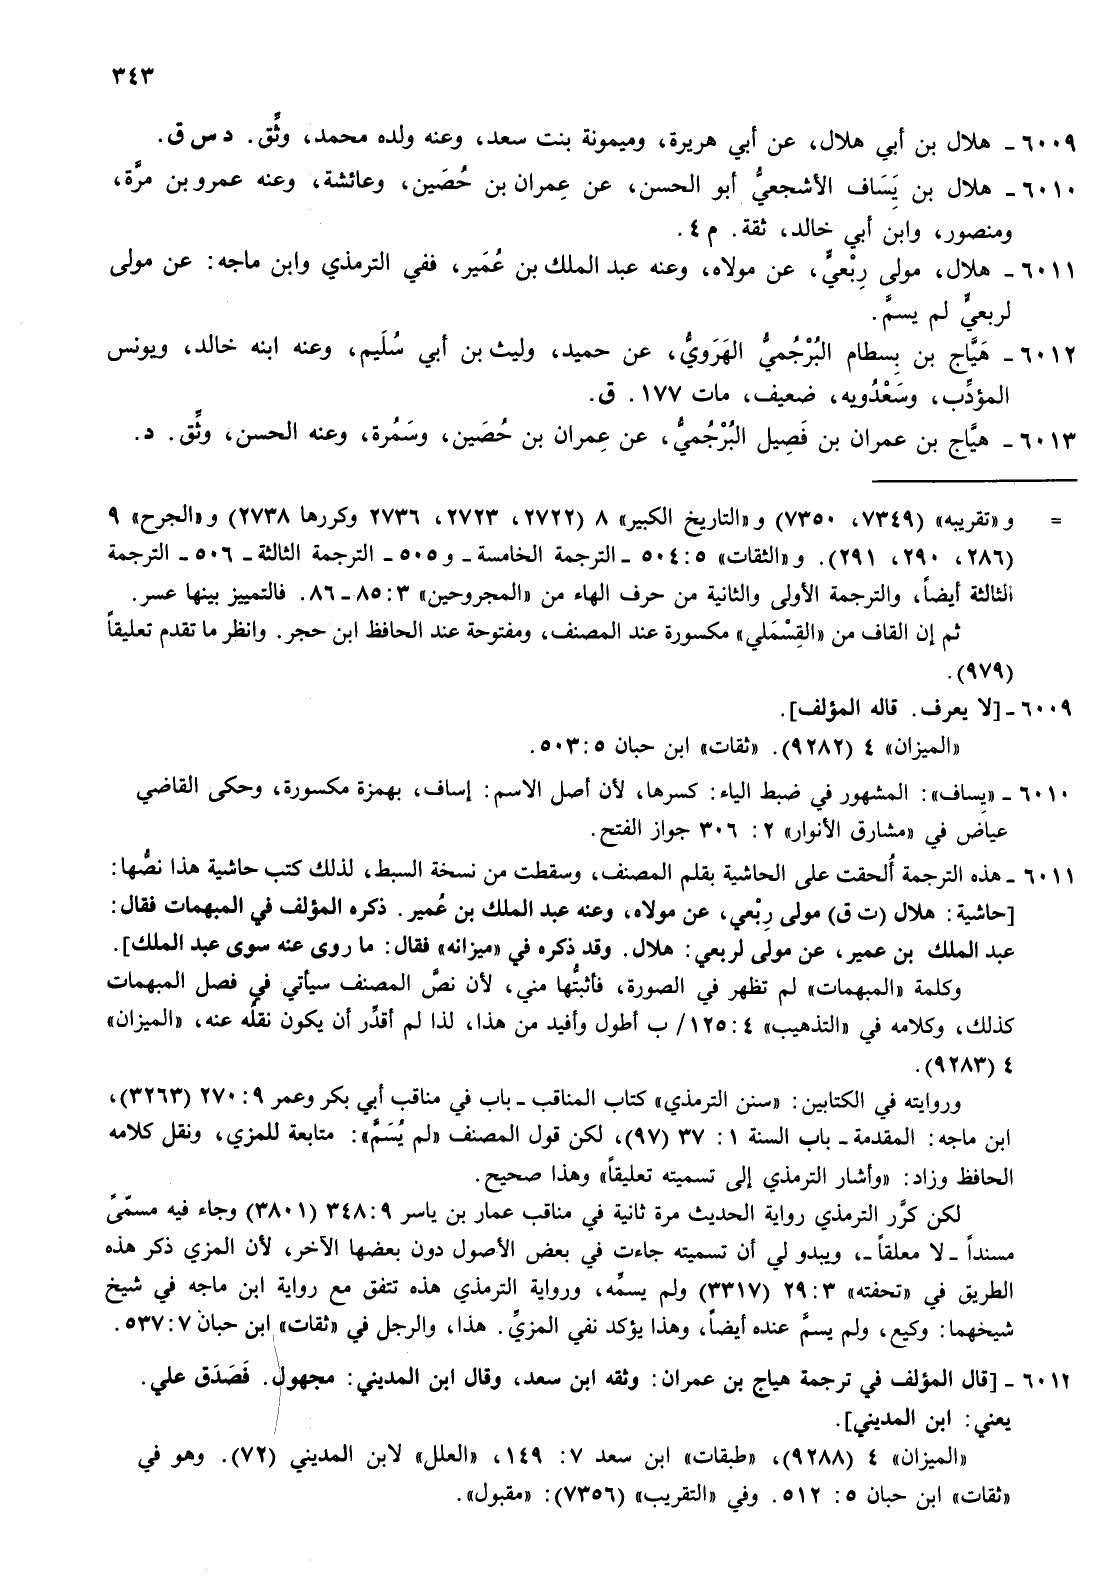 ٣٤٣
٦٠٠٩ ـ هلال بن أبي هلال، عن أبي هريرة، وميمونة بنت سعد، وعنه ولده محمد، وثِّق. د س ق.
٦٠١٠ ـ هلال بن يَسَاف الأشجعيُّ أبو الحسن، عن عِمران بن حُصَين، وعائشة، وعنه عمرو بن مرَّة،
ومنصور، وابن أبي خالد، ثقة. م ٤.
٦٠١١ ـ هلال، مولى رِبْعيٍّ، عن مولاه، وعنه عبد الملك بن عُمَير، ففي الترمذي وابن ماجه: عن مولى
لربعيٍّ لم يسمَّ.
٦٠١٢ ـ هَيَّاج بن بِسطام البُرْجُميُّ الهَرَويُّ، عن حميد، وليث بن أبي سُلَيم، وعنه ابنه خالد، ويونس
المؤدِّب، وسَعْدُويه، ضعيف، مات ١٧٧. ق.
٦٠١٣ ـ هيَّاج بن عمران بن فَصِيل البُرْجُميُّ، عن عِمران بن حُصَين، وسَمُرة، وعنه الحسن، وثِّق. د.
= و«تقريبه» (٧٣٤٩، ٧٣٥٠) و«التاريخ الكبير» ٨ (٢٧٢٢، ٢٧٢٣، ٢٧٣٦ وكررها ٢٧٣٨) و«الجرح» ٩
(٢٨٦، ٢٩٠، ٢٩١). و«الثقات» ٥: ٥٠٤ ـ الترجمة الخامسة ـ و٥٠٥ ـ الترجمة الثالثة ـ ٥٠٦ ـ الترجمة
الثالثة أيضاً، والترجمة الأولى والثانية من حرف الهاء من «المجروحين» ٣: ٨٥ ـ ٨٦. فالتمييز بينها عسر.
ثم إن القاف من «القِسْمَلي» مكسورة عند المصنف، ومفتوحة عند الحافظ ابن حجر. وانظر ما تقدم تعليقاً
(٩٧٩).
٦٠٠٩ ـ [لا يعرف. قاله المؤلف].
«الميزان» ٤ (٩٢٨٢). «ثقات» ابن حبان ٥: ٥٠٣.
٦٠١٠ ـ «يِساف»: المشهور في ضبط الياء: كسرها، لأن أصل الاسم: إساف، بهمزة مكسورة، وحكى القاضي
عياض في «مشارق الأنوار» ٢: ٣٠٦ جواز الفتح.
٦٠١١ ـ هذه الترجمة أُلحقت على الحاشية بقلم المصنف، وسقطت من نسخة السبط، لذلك كتب حاشية هذا نصُّها:
[حاشية: هلال (ت ق) مولى رِبْعي، عن مولاه، وعنه عبد الملك بن عُمير. ذكره المؤلف في المبهمات فقال:
عبد الملك بن عمير، عن مولى لربعي: هلال. وقد ذكره في «ميزانه» فقال: ما روى عنه سوى عبد الملك].
وكلمة «المبهمات» لم تظهر في الصورة، فأثبتُّها مني، لأن نصَّ المصنف سيأتي في فصل المبهمات
كذلك، وكلامه في «التذهيب» ٤: ١٢٥/ ب أطول وأفيد من هذا، لذا لم أقدِّر أن يكون نقلَه عنه، «الميزان»
٤ (٩٢٨٣).
وروايته في الكتابين: «سنن الترمذي» كتاب المناقب ـ باب في مناقب أبي بكر وعمر ٩: ٢٧٠ (٣٢٦٣)،
ابن ماجه: المقدمة ـ باب السنة ١: ٣٧ (٩٧)، لكن قول المصنف «لم يُسَمَّ»: متابعة للمزي، ونقل كلامه
الحافظ وزاد: «وأشار الترمذي إلى تسميته تعليقاً» وهذا صحيح.
لكن كرَّر الترمذي رواية الحديث مرة ثانية في مناقب عمار بن ياسر ٩: ٣٤٨ (٣٨٠١) وجاء فيه مسمّىً
مسنداً ـ لا معلقاً ـ، ويبدو لي أن تسميته جاءت في بعض الأصول دون بعضها الآخر، لأن المزي ذكر هذه
الطريق في «تحفته» ٣: ٢٩ (٣٣١٧) ولم يسمِّه، ورواية الترمذي هذه تتفق مع رواية ابن ماجه في شيخ
شيخهما: وكيع، ولم يسمَّ عنده أيضاً، وهذا يؤكد نفي المزيِّ. هذا، والرجل في «ثقات» ابن حبان ٧: ٥٣٧.
٦٠١٢ ـ [قال المؤلف في ترجمة هياج بن عمران: وثقه ابن سعد، وقال ابن المديني: مجهول. فَصَدَق علي.
يعني: ابن المديني].
«الميزان» ٤ (٩٢٨٨)، «طبقات» ابن سعد ٧: ١٤٩، «العلل» لابن المديني (٧٢). وهو في
«ثقات» ابن حبان ٥: ٥١٢. وفي «التقريب» (٧٣٥٦): «مقبول».